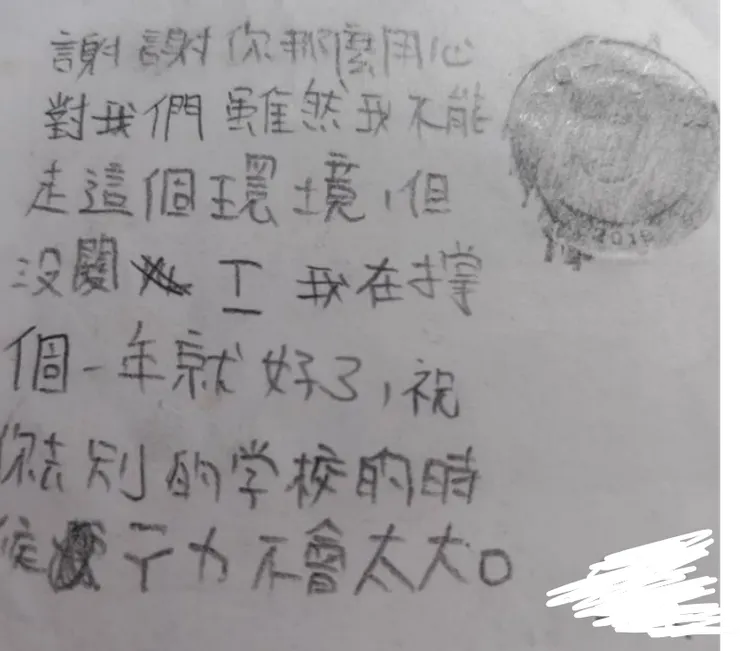 謝謝你那麼用心
對我們雖然我不能
走這個環境,但
沒關 工 我在撐
個一年就好了,祝
你去別的学校的時
不會太大。
2018